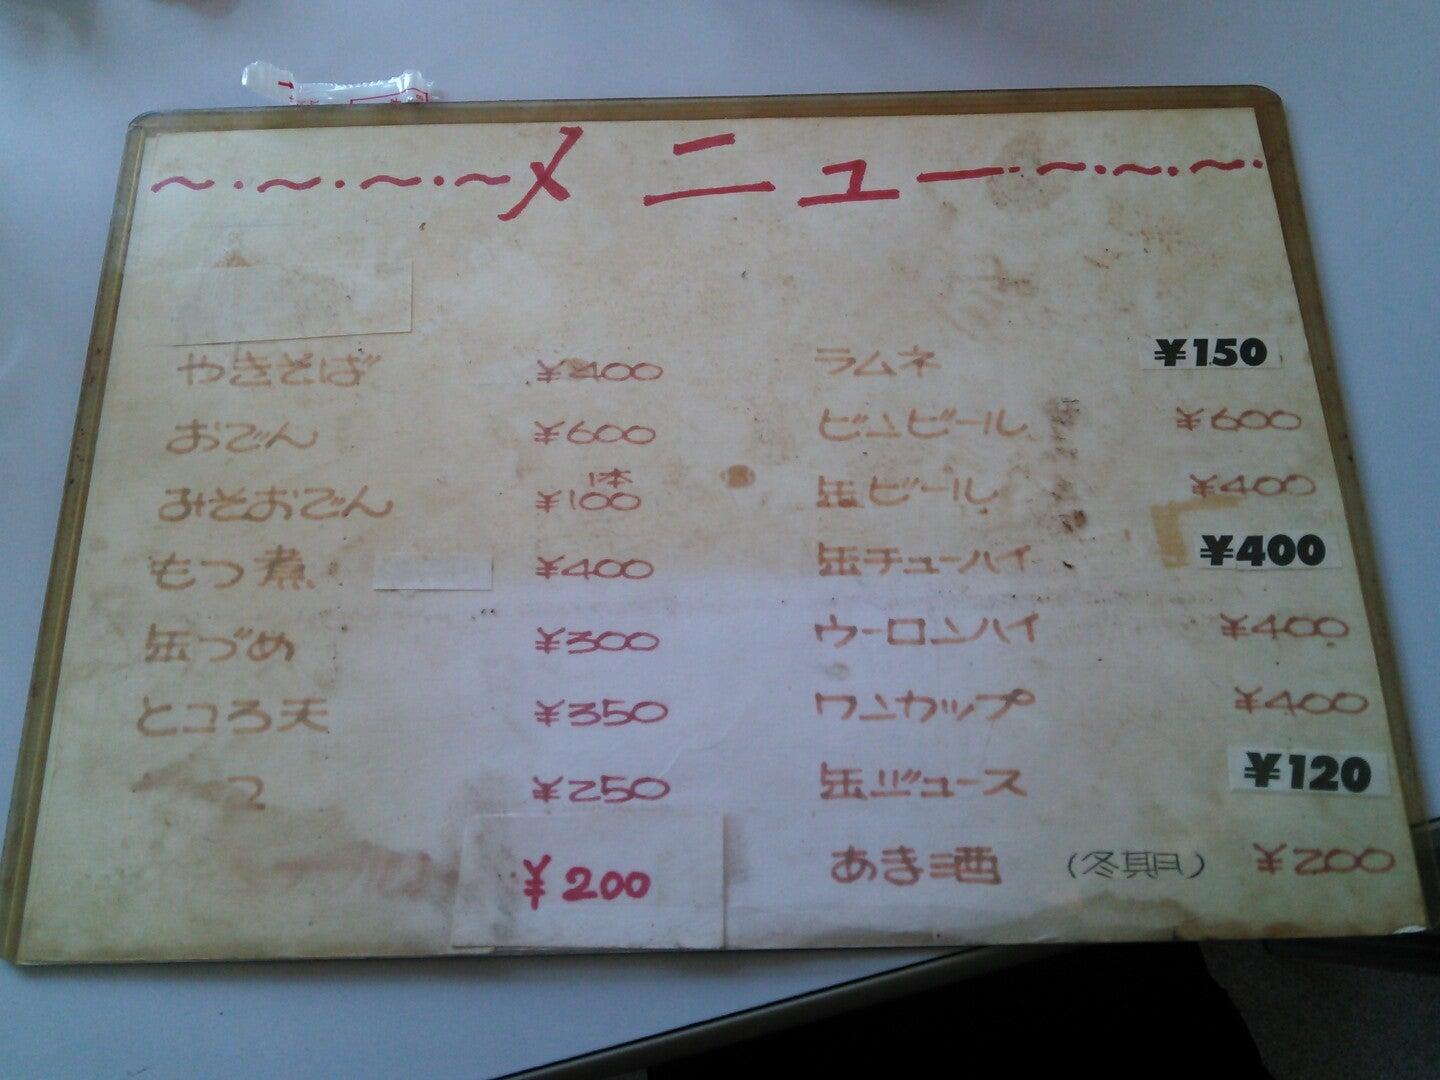 メニュー
やきそば ¥400
おでん ¥600
みそおでん 1本 ¥100
もつ煮 ¥400
缶づめ ¥300
ところ天 ¥350
¥250
¥200
ラムネ ¥150
ビンビール ¥600
缶ビール ¥400
缶チューハイ ¥400
ウーロンハイ ¥400
ワンカップ ¥400
缶ジュース ¥120
あま酒 (冬期) ¥200